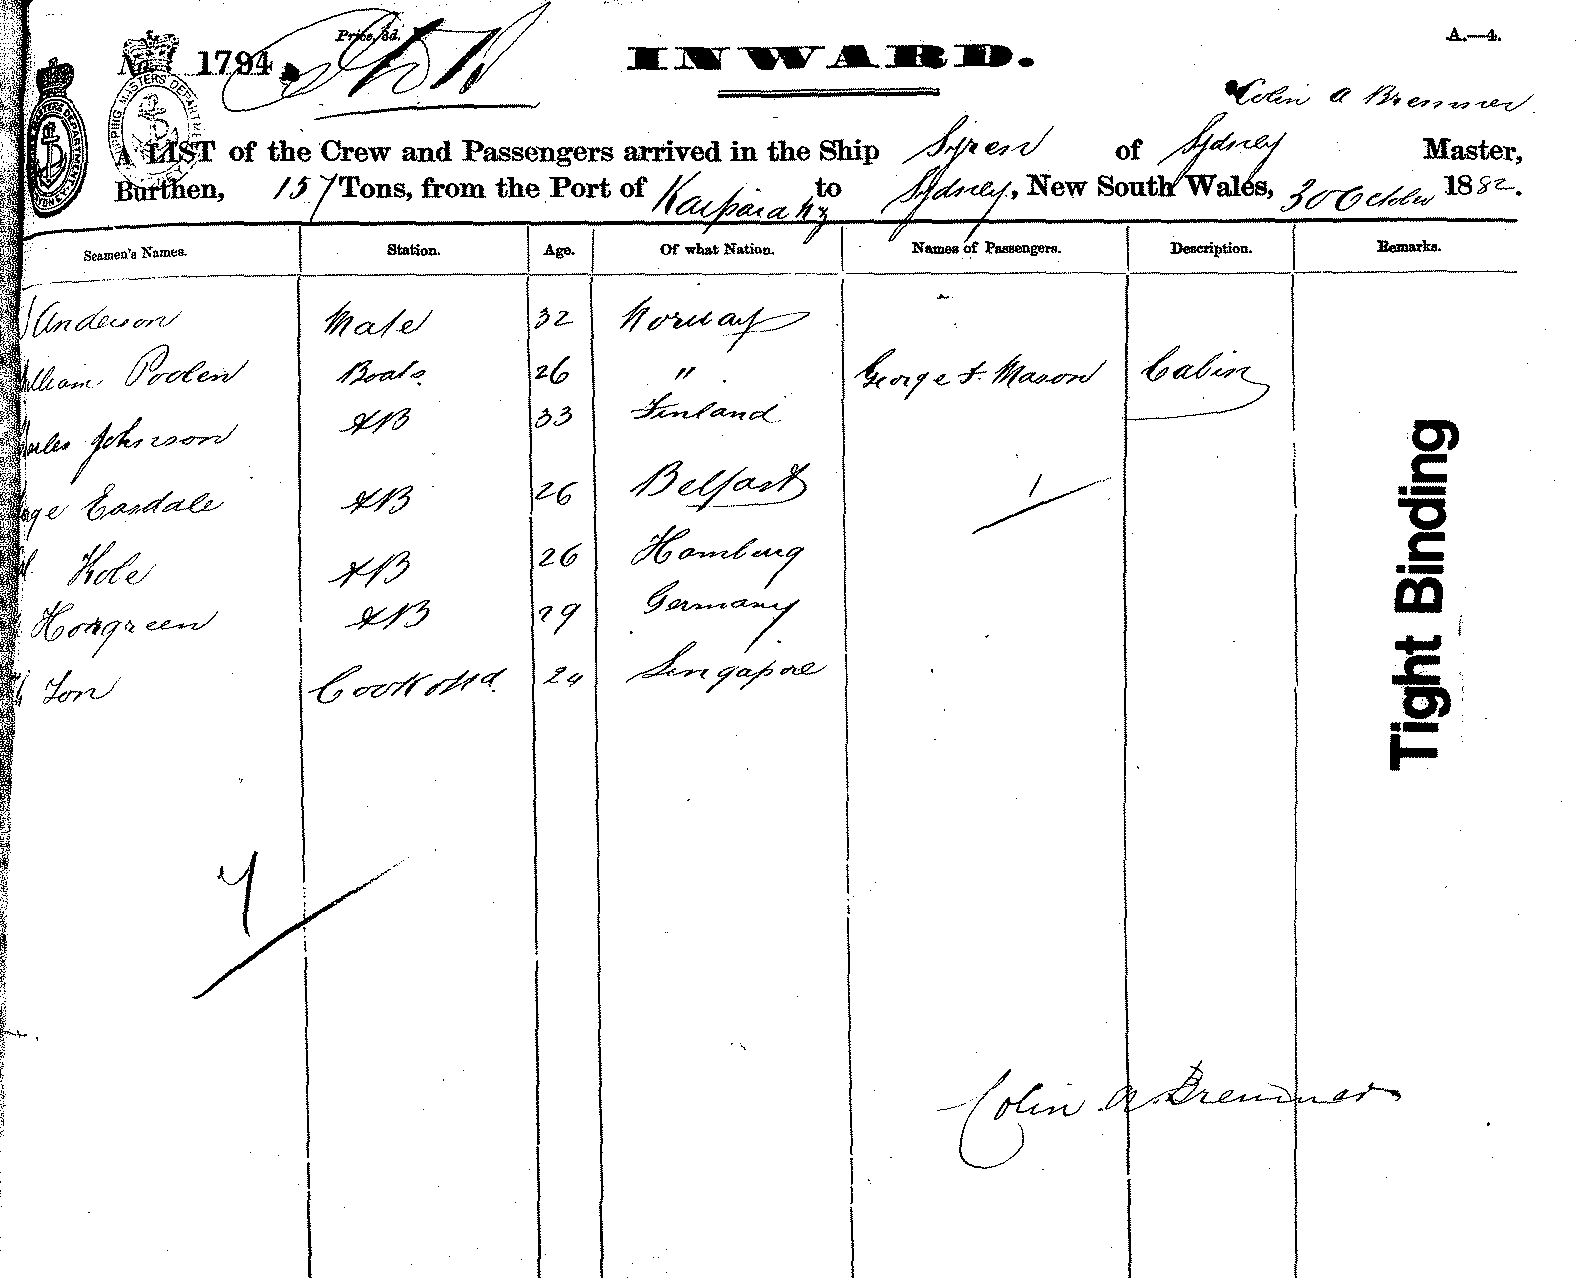 Price, 3d.
A.—4.
No. 1794
INWARD.
Colin A Bremner
A LIST of the Crew and Passengers arrived in the Ship Syren of Sydney Master,
Burthen, 157 Tons, from the Port of Kaipara NZ to Sydney, New South Wales, 30 October 1882.
Seamen's Names. Station. Age. Of what Nation. Names of Passengers. Description. Remarks.
Anderson Mate 32 Norway
William Poolen Boats. 26 " George F. Mason Cabin
Charles Johnson AB 33 Finland
George Easdale AB 26 Belfast
Kole AB 26 Hamburg
1
Horgreen AB 29 Germany
Cook & Std. 24 Singapore
Tight Binding
7
Colin A Bremner